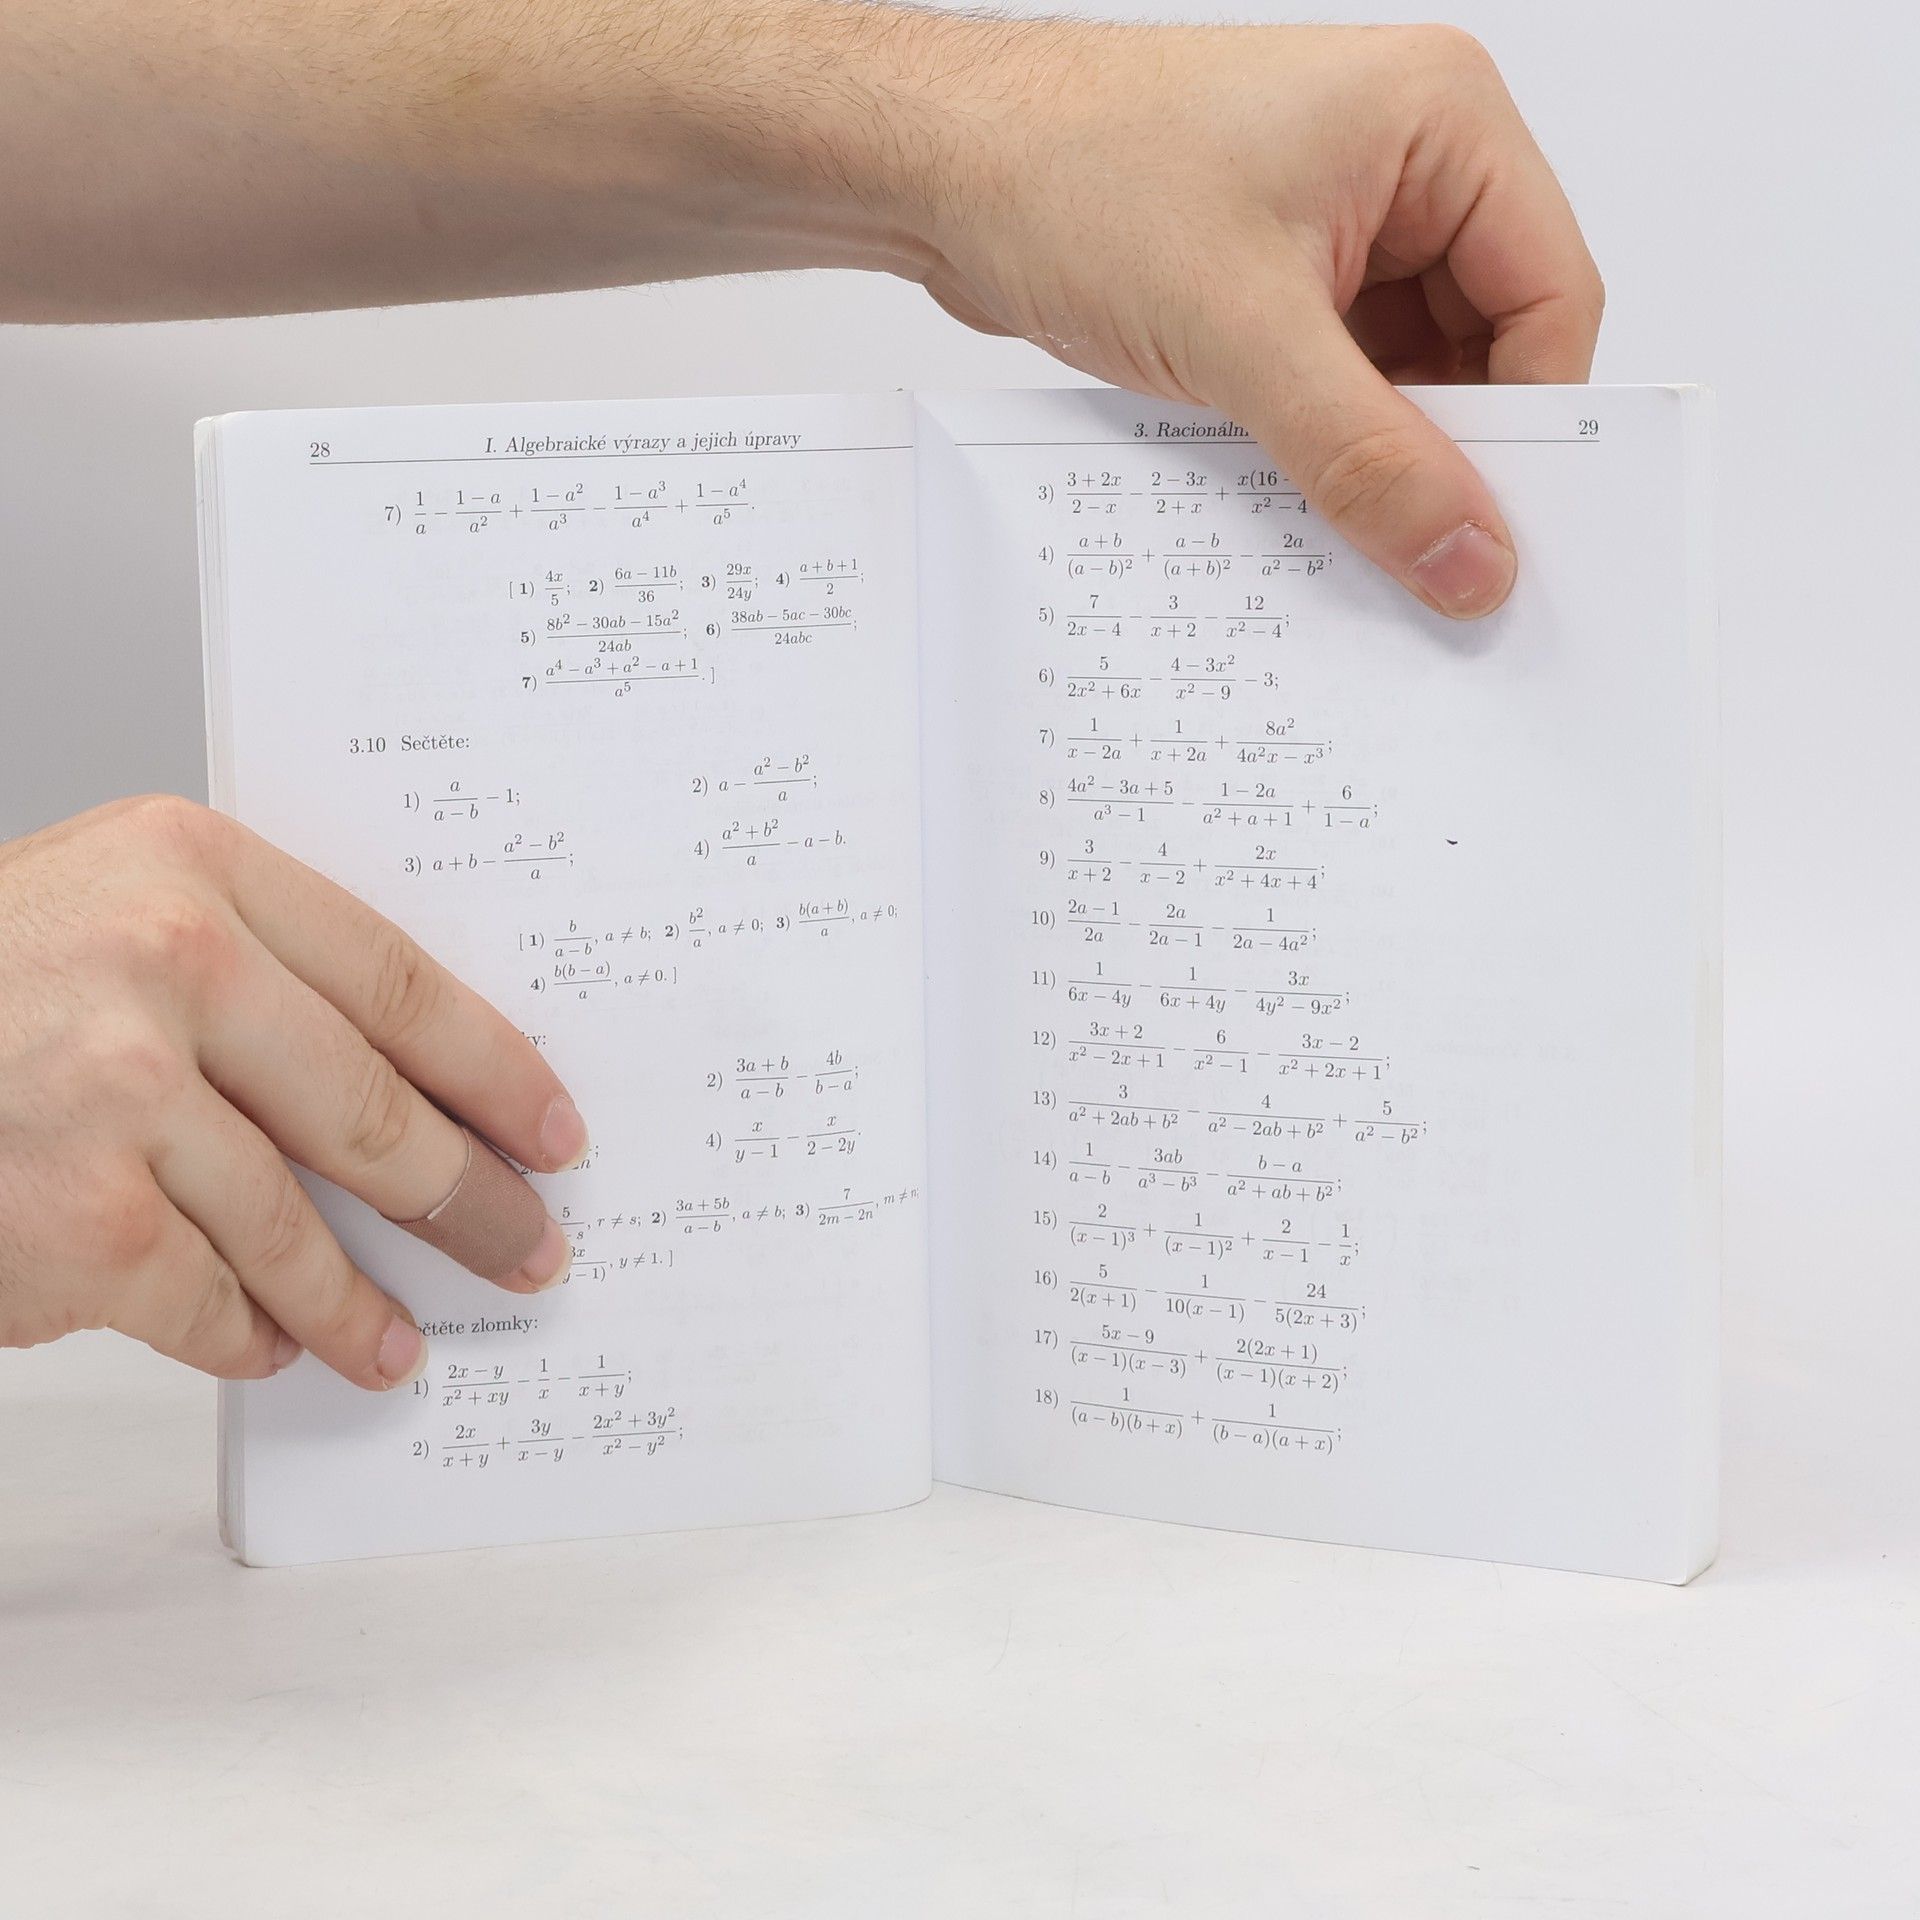 28 I. Algebraické výrazy a jejich úpravy
7) \frac{1}{a} - \frac{1-a}{a^2} + \frac{1-a^2}{a^3} - \frac{1-a^3}{a^4} + \frac{1-a^4}{a^5}.
[ 1) \frac{4x}{5}; 2) \frac{6a-11b}{36}; 3) \frac{29x}{24y}; 4) \frac{a+b+1}{2};
5) \frac{8b^2-30ab-15a^2}{24ab}; 6) \frac{38ab-5ac-30bc}{24abc};
7) \frac{a^4-a^3+a^2-a+1}{a^5}. ]
3.10 Sečtěte:
1) \frac{a}{a-b} - 1; 2) a - \frac{a^2-b^2}{a};
3) a + b - \frac{a^2-b^2}{a}; 4) \frac{a^2+b^2}{a} - a - b.
[ 1) \frac{b}{a-b}, a ≠ b; 2) \frac{b^2}{a}, a ≠ 0; 3) \frac{b(a+b)}{a}, a ≠ 0;
4) \frac{b(b-a)}{a}, a ≠ 0. ]
2) \frac{3a+b}{a-b} - \frac{4b}{b-a};
4) \frac{x}{y-1} - \frac{x}{2-2y}.
, r ≠ s; 2) \frac{3a+5b}{a-b}, a ≠ b; 3) \frac{7}{2m-2n}, m ≠ n;
, y ≠ 1. ]
zlomky:
1) \frac{2x-y}{x^2+xy} - \frac{1}{x} - \frac{1}{x+y};
2) \frac{2x}{x+y} + \frac{3y}{x-y} - \frac{2x^2+3y^2}{x^2-y^2};
3. 29
3) \frac{3+2x}{2-x} - \frac{2-3x}{2+x} + \frac{x(16-}{x^2-4}
4) \frac{a+b}{(a-b)^2} + \frac{a-b}{(a+b)^2} - \frac{2a}{a^2-b^2};
5) \frac{7}{2x-4} - \frac{3}{x+2} - \frac{12}{x^2-4};
6) \frac{5}{2x^2+6x} - \frac{4-3x^2}{x^2-9} - 3;
7) \frac{1}{x-2a} + \frac{1}{x+2a} + \frac{8a^2}{4a^2x-x^3};
8) \frac{4a^2-3a+5}{a^3-1} - \frac{1-2a}{a^2+a+1} + \frac{6}{1-a};
9) \frac{3}{x+2} - \frac{4}{x-2} + \frac{2x}{x^2+4x+4};
10) \frac{2a-1}{2a} - \frac{2a}{2a-1} - \frac{1}{2a-4a^2};
11) \frac{1}{6x-4y} - \frac{1}{6x+4y} - \frac{3x}{4y^2-9x^2};
12) \frac{3x+2}{x^2-2x+1} - \frac{6}{x^2-1} - \frac{3x-2}{x^2+2x+1};
13) \frac{3}{a^2+2ab+b^2} - \frac{4}{a^2-2ab+b^2} + \frac{5}{a^2-b^2};
14) \frac{1}{a-b} - \frac{3ab}{a^3-b^3} - \frac{b-a}{a^2+ab+b^2};
15) \frac{2}{(x-1)^3} + \frac{1}{(x-1)^2} + \frac{2}{x-1} - \frac{1}{x};
16) \frac{5}{2(x+1)} - \frac{1}{10(x-1)} - \frac{24}{5(2x+3)};
17) \frac{5x-9}{(x-1)(x-3)} + \frac{2(2x+1)}{(x-1)(x+2)};
18) \frac{1}{(a-b)(b+x)} + \frac{1}{(b-a)(a+x)};